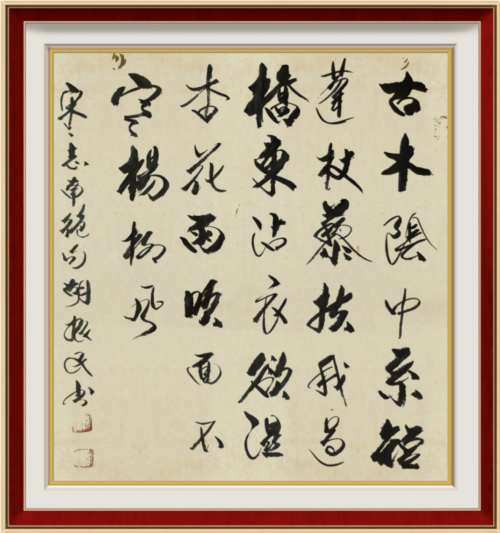 古木陰中系短
蓬杖藜扶我過
橋東沾衣欲湿
杏花雨吹面不
寒楊柳风
宋志南絶句胡振民书